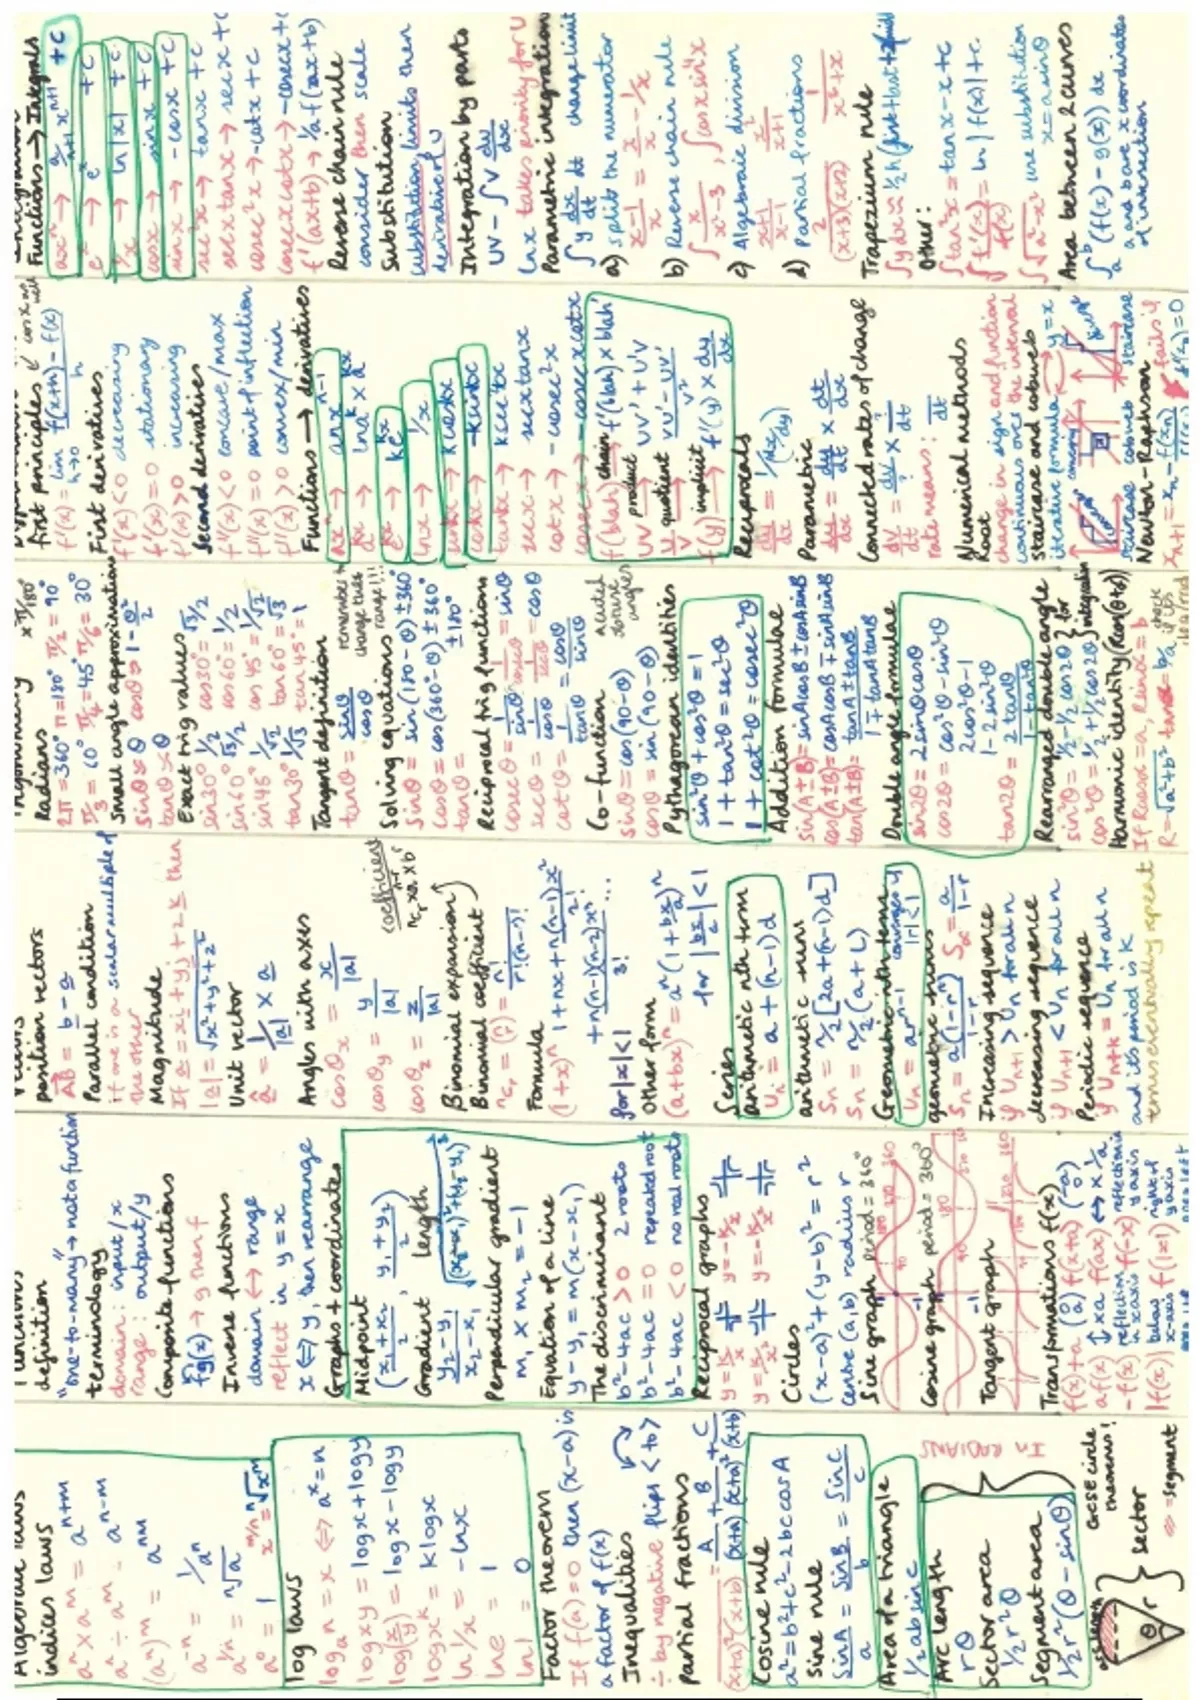 Algebraic laws
indices laws
aⁿ × aᵐ = aⁿ⁺ᵐ
aⁿ ÷ aᵐ = aⁿ⁻ᵐ
(aⁿ)ᵐ = aⁿᵐ
a⁻ⁿ = 1/aⁿ
a^(1/n) = ⁿ√a
a⁰ = 1 x^(m/n) = ⁿ√xᵐ
log laws
logₐ n = x ⇔ aˣ = n
log xy = log x + log y
log(x/y) = log x - log y
log xᵏ = k log x
ln 1/x = -ln x
ln e = 1
ln 1 = 0
Factor theorem
If f(a) = 0 then (x-a) is
a factor of f(x)
Inequalities
÷ by negative flips < to >
Partial fractions
(x+a)²(x+b) = A/(x+a) + B/(x+a)² + C/(x+b)
Cosine rule
a² = b² + c² - 2bc cosA
Sine rule
sinA/a = sinB/b = sinC/c
Area of a triangle
½ ab sin c
Arc length
rθ
Sector area
½ r²θ
Segment area
½ r² (θ - sinθ)
IN RADIANS
GCSE circle
theorems!
arc length
θ r } sector
⇒ = segment
Functions
definition
"one-to-many" → not a function
terminology
domain : input / x
range : output / y
Composite functions
fg(x) → g then f
Inverse functions
domain ↔ range
reflect in y = x
x ⇔ y, then rearrange
Graphs + coordinates
Midpoint
((x₁+x₂)/2 , (y₁+y₂)/2)
Gradient length
(y₂-y₁)/(x₂-x₁) √((x₂-x₁)²+(y₂-y₁)²)
Perpendicular gradient
m₁ × m₂ = -1
Equation of a line
y - y₁ = m(x - x₁)
The discriminant
b² - 4ac > 0 2 roots
b² - 4ac = 0 repeated root
b² - 4ac < 0 no real roots
Reciprocal graphs
y = k/x y = -k/x
y = k/x² y = -k/x²
Circles
(x-a)² + (y-b)² = r²
centre (a,b) radius r
Sine graph period = 360°
90 180 270 360
Cosine graph period = 360°
90 180 270 360
Tangent graph
Transformations f(x)
f(x)+a (0 a) f(x+a) (-a 0)
af(x) ↕ xa f(ax) ↔ x 1/a
-f(x) reflection in x axis f(-x) reflection in y axis
|f(x)| below x-axis f(|x|) right of y axis
Vectors
position vectors
AB = b - a
Parallel condition
if one is a scalar multiple of
the other
Magnitude
If a = xi + yj + zk then
|a| = √(x²+y²+z²)
Unit vector
â = 1/|a| × a
Angles with axes
cosθₓ = x/|a|
cosθᵧ = y/|a|
cosθ_z = z/|a|
Binomial expansion coefficient
Binomial coefficient
nCr = (n r) = n!/(r!(n-r)!)
Formula
(1+x)ⁿ 1 + nx + n(n-1)x²/2!
+ n(n-1)(n-2)x³/3! ...
for |x| < 1
Other form
(a+bx)ⁿ = aⁿ(1 + bx/a)ⁿ
Series
arithmetic nth term
Uₙ = a + (n-1)d
arithmetic sum
Sₙ = n/2 [2a + (n-1)d]
Sₙ = n/2 (a + L)
Geometric nth term
Uₙ = arⁿ⁻¹ converges if |r| < 1
geometric sums
Sₙ = a(1-rⁿ)/(1-r) S∞ = a/(1-r)
Increasing sequence
if Uₙ₊₁ > Uₙ for all n
decreasing sequence
if Uₙ₊₁ < Uₙ for all n
Periodic sequence
if Uₙ₊ₖ = Uₙ for all n
and its period is k
terms eventually repeat
Trigonometry x π/180°
Radians
2π = 360° π = 180° π/2 = 90°
π/3 = 60° π/4 = 45° π/6 = 30°
Small angle approximation
sinθ ≈ θ cosθ ≈ 1 - θ²/2
tanθ ≈ θ
Exact trig values
sin30° 1/2 cos30° = √3/2
sin60° √3/2 cos60° = 1/2
sin45° 1/√2 cos45° = 1/√2
tan30° 1/√3 tan60° = √3
tan45° = 1
Tangent definition
tanθ = sinθ/cosθ
remember to
change the
range!!!
Solving equations
sinθ = sin(180-θ) ±360°
cosθ = cos(360°-θ) ±360°
tanθ = ±180°
Reciprocal trig functions
cosecθ = 1/sinθ
secθ = 1/cosθ
cotθ = 1/tanθ = cosθ/sinθ
Co-function
sinθ = cos(90-θ)
cosθ = sin(90-θ)
Pythagorean identities
sin²θ + cos²θ = 1
1 + tan²θ = sec²θ
1 + cot²θ = cosec²θ
Addition formulae
sin(A±B) = sinAcosB ± cosAsinB
cos(A±B) = cosAcosB ∓ sinAsinB
tan(A±B) = (tanA ± tanB)/(1 ∓ tanAtanB)
Double angle formulae
sin2θ = 2sinθcosθ
cos2θ = cos²θ - sin²θ
2cos²θ - 1
1 - 2sin²θ
tan2θ = 2tanθ/(1-tan²θ)
Rearranged double angle
sin²θ = 1/2 - 1/2 cos2θ } for
cos²θ = 1/2 + 1/2 cos2θ } integration
Harmonic identity
If Rcosα = a, Rsinα = b
R = √(a²+b²) tanα = b/a
first principles
f'(x) = lim h→0 (f(x+h) - f(x))/h
First derivatives
f'(x) < 0 decreasing
f'(x) = 0 stationary
f'(x) > 0 increasing
Second derivatives
f''(x) < 0 concave/max
f''(x) = 0 point of inflection
f''(x) > 0 convex/min
Functions → derivatives
axⁿ → anxⁿ⁻¹
ln x → 1/x
tan kx → k sec²kx
sec x → sec x tan x
cot x → -cosec²x
cosec x → -cosec x cot x
f(blah) chain f'(blah) × blah'
UV product UV' + U'V
U/V quotient (VU' - UV')/V²
f(y) implicit f'(y) × dy/dx
Reciprocals
dy/dx = 1/(dx/dy)
Parametric
dy/dx = dy/dt × dt/dx
Connected rates of change
dV/dt = dV/? × ?/dt
rate means : ?/dt
Numerical methods
Root
change in sign and function
continuous over the interval
staircase and cobweb
iterative formula y = x
staircase cobweb staircase
Newton-Raphson
fails if
f'(x) = 0
Integration
Functions → Integrals
axⁿ → a/(n+1) xⁿ⁺¹ + c
eˣ → eˣ + c
1/x → ln|x| + c
cos x → sin x + c
sin x → -cos x + c
sec²x → tan x + c
sec x tan x → sec x + c
cosec²x → -cot x + c
cosec x cot x → -cosec x + c
f'(ax+b) → 1/a f(ax+b)
Reverse chain rule
consider then scale
Substitution
substitution, limits then
derivative of U
Integration by parts
UV - ∫V du/dx
ln x takes priority for U
Parametric integration
∫ y dx/dt dt change limit
a) split the numerator
(x-1)/x = x/x - 1/x
b) Reverse chain rule
∫ x/(x²-3), ∫ cos x sin⁴x
c) Algebraic division
d) Partial fractions
2/((x+3)(x+2)) 1/(x²+x)
Trapezium rule
Other :
∫ tan²x = tan x - x + c
∫ f'(x)/f(x) = ln|f(x)| + c
∫ √(a²-x²) use substitution
x = a sinθ
Area between 2 curves
∫ₐᵇ (f(x) - g(x)) dx
a and b are x coordinates
of intersection